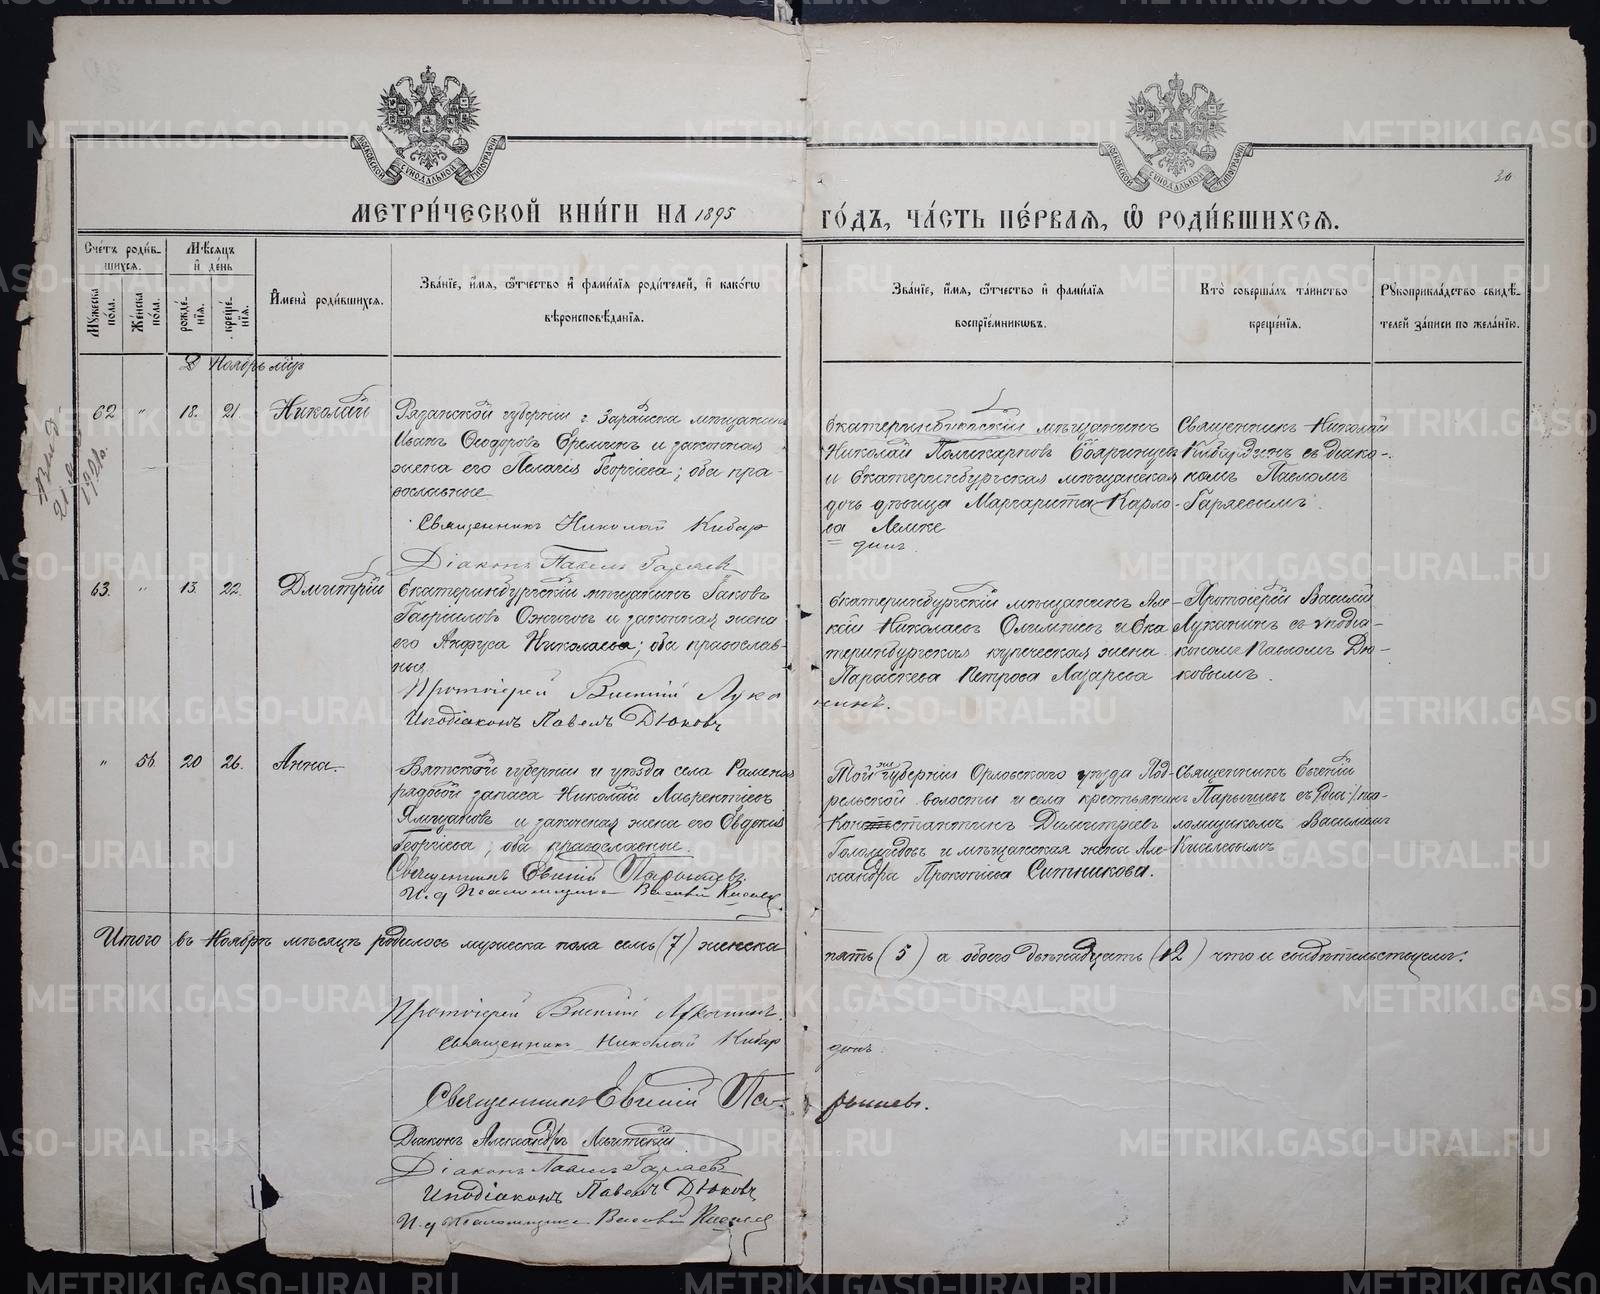 МОСКОВСКОЙ СУНОДАЛЬНОЙ ТИПОГРАФІИ
МОСКОВСКОЙ СУНОДАЛЬНОЙ ТИПОГРАФІИ
30
МЕТРИ́ЧЕСКОЙ КНИ́ГИ НА 1895 ГО́ДЪ, ЧА́СТЬ ПЕ́РВАЯ, Ѡ РОДИ́ВШИХСЯ.
Сче́тъ роди́в-
шихся.
Му́жеска по́ла.
Же́нска по́ла.
Мѣ́сяцъ
и де́нь
рожде́нія.
креще́нія.
Имена̀ роди́вшихся.
Зва́ніе, и́мя, ѻ́тчество и фами́лія роди́телей, и како́гѡ
вѣроисповѣ́данія.
Зва́ніе, и́мя, ѻ́тчество и фами́лія
воспріе́мникѡвъ.
Кто̀ соверша́лъ та́инство
креще́нія.
Рукоприкла́дство свидѣ́-
телей за́писи по жела́нію.
62 " 18. 21. Николай
Рязанской губерніи г. Зарайска мѣщанинъ
Иванъ Ѳеодоровъ Ереминъ и законная
жена его Пелагія Георгіева; оба пра-
вославные
Священникъ Николай Кибар
Діаконъ Павелъ Гаряевъ
Екатеринбургскій мѣщанинъ
Николай Поликарповъ Бояринцевъ
и Екатеринбургская мѣщанская
дочь дѣвица Маргарита Карло-
ва Лемке
динъ.
Священникъ Николай
Кибардинъ съ діако-
номъ Павломъ
Гаряевымъ.
63. " 13. 22. Дмитрій
Екатеринбургскій мѣщанинъ Іаковъ
Гавріиловъ Ожиговъ и законная жена
его Анфуса Николаева; оба православ-
ные
Протоіерей Василій Лука
Иподіаконъ Павелъ Дюковъ
Екатеринбургскій мѣщанинъ Але-
ксѣй Николаевъ Олимпіевъ и Ека
теринбургская купеческая жена
Параскева Петрова Лазарева
нинъ.
Протоіерей Василій
Луканинъ съ иподіа-
кономъ Павломъ Дю-
ковымъ.
" 56. 20 26. Анна.
Вятской губерніи и уѣзда села
рядовой запаса Николай Лаврентіевъ
и законная жена его Евдокія
Георгіева; оба православные.
Священникъ Евгеній Парышевъ.
И. д Псаломщика Василій Киселевъ
Той же губерніи Орловскаго уѣзда
волости и села крестьянинъ
Константинъ Димитріевъ
и мѣщанская жена Але-
ксандра Прокопіева Ситникова.
Священникъ Евгеній
Парышевъ съ и д пса-
ломщикомъ Василіемъ
Киселевымъ
Итого въ Ноябрѣ мѣсяцѣ родилось мужеска пола семь (7) женска
пять (5) а обоего двѣнадцать (12) что и свидѣтельствуемъ.
Протоіерей Василій Луканинъ.
Священникъ Николай Кибар
динъ.
Священникъ Евгеній Па-
рышевъ.
Діаконъ Александръ
Діаконъ Павелъ Гаряевъ
Иподіаконъ Павелъ Дюковъ
И. д Псаломщика Василій Киселевъ
METRIKI.GASO-URAL.RU